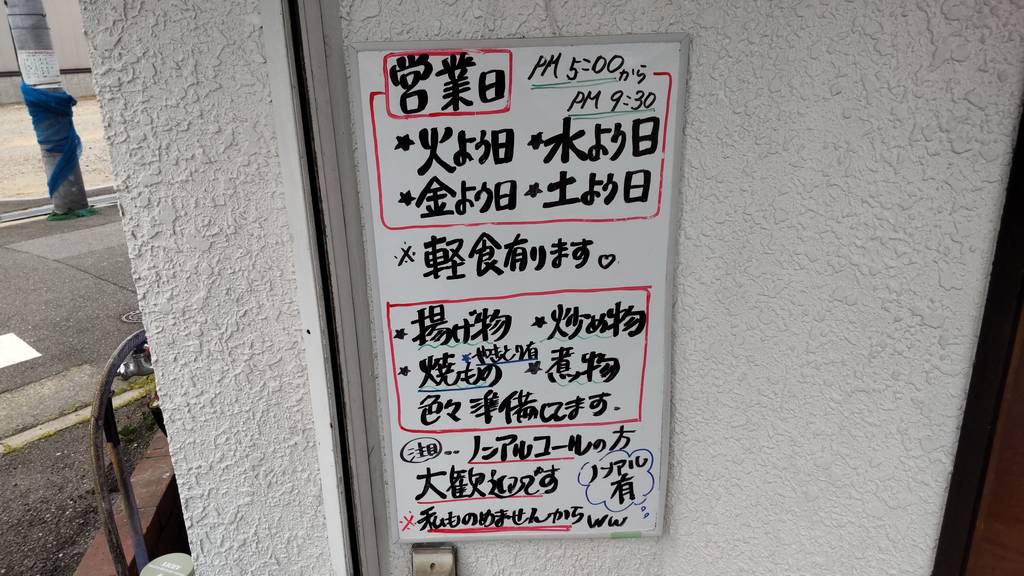 営業日 PM 5:00から
PM 9:30
★火よう日 ★水よう日
★金よう日 ★土よう日
※軽食有ります♡
★揚げ物 ★炒め物
★やきとり有
★焼もの ★煮物
色々準備してます.
ノンアルコールの方
大歓迎です
ノンアル
有
※私ものめませんから ww